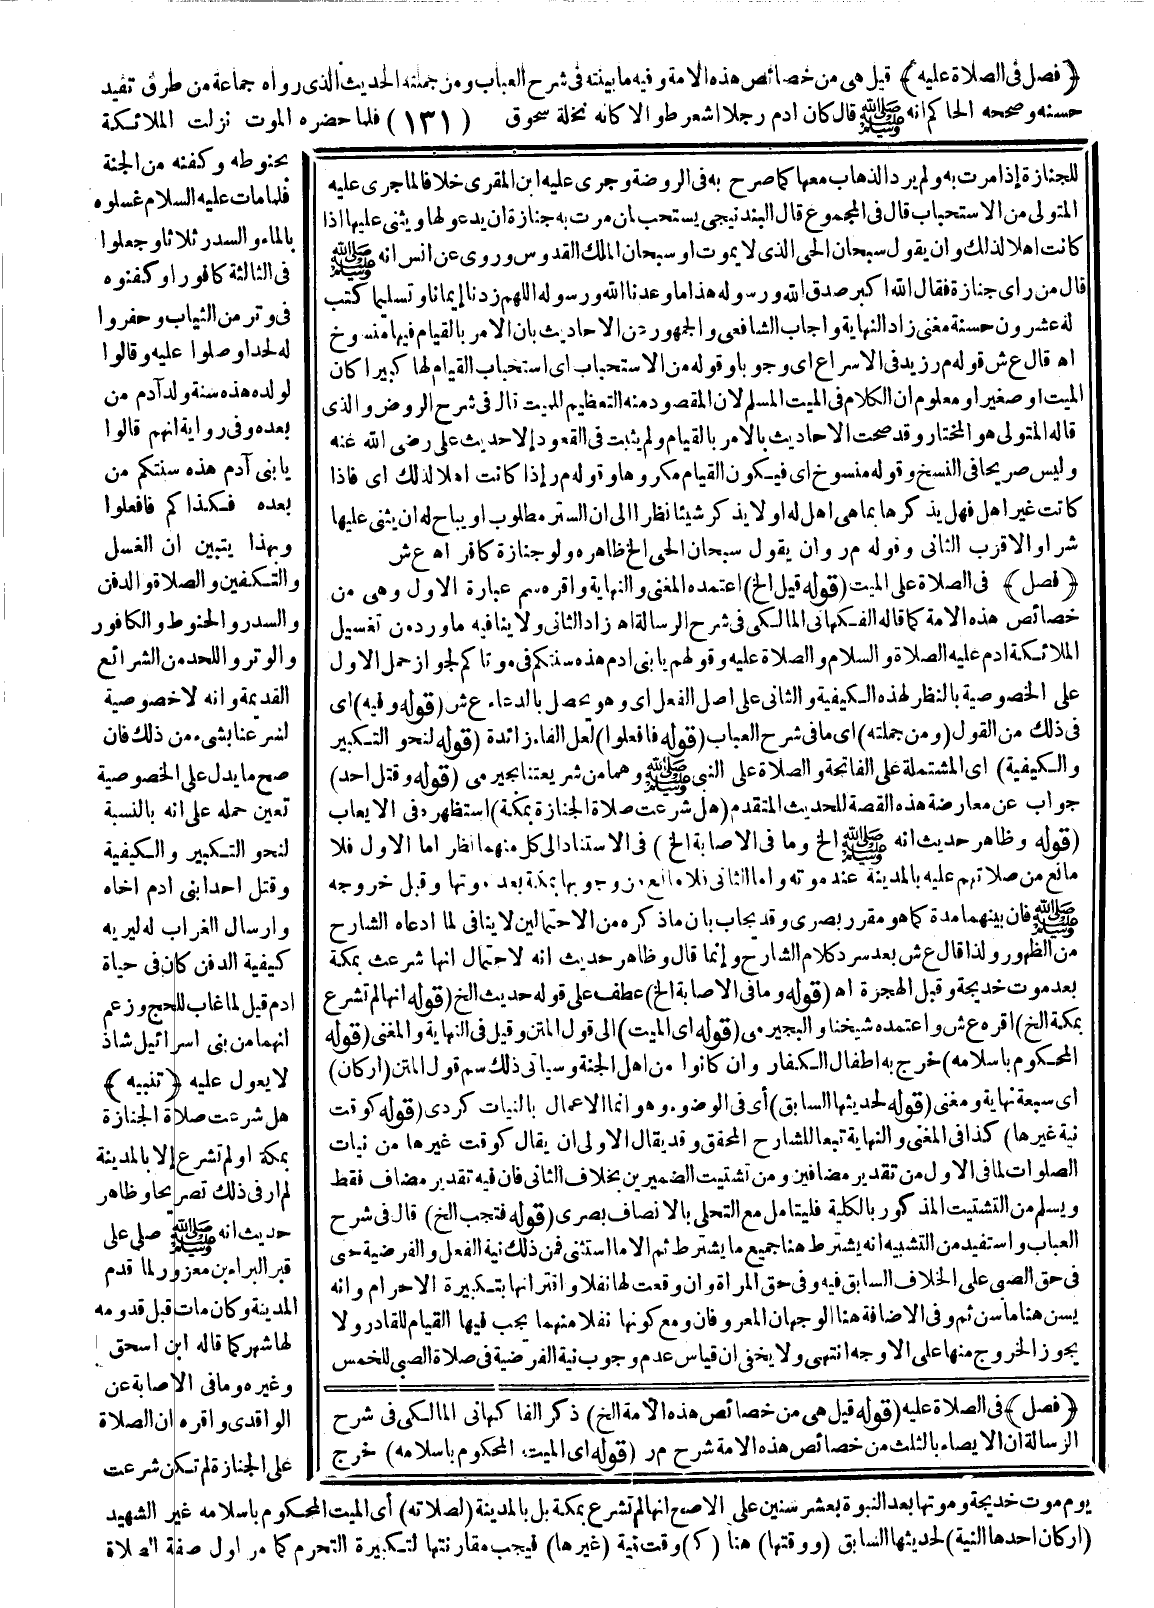 ﴿ فصل فى الصلاة عليه ﴾ قيل هى من خصائص هذه الامة وفيه ما بينته فى شرح العباب ومن جملته الحديث الذى رواه جماعة من طرق تفيد
حسنه وصححه الحاكم انه ﷺ قال كان ادم رجلا اشعر طوالا كانه نخلة سحوق (١٣١) فلما حضره الموت نزلت الملائكة
بحنوطه وكفنه من الجنة
فلما مات عليه السلام غسلوه
بالماء والسدر ثلاثا وجعلوا
فى الثالثة كافورا وكفنوه
فى وتر من الثياب وحفروا
له لحدا وصلوا عليه وقالوا
لولده هذه سنة ولد آدم من
بعده وفى رواية انهم قالوا
يا بنى آدم هذه سنتكم من
بعده فكذا كم فافعلوا
وبهذا يتبين ان الغسل
والتكفين والصلاة والدفن
والسدر والحنوط والكافور
والوتر واللحد من الشرائع
القديمة وانه لا خصوصية
لشرعنا بشىء من ذلك فان
صح ما يدل على الخصوصية
تعين حمله على انه بالنسبة
لنحو التكبير والكيفية
وقتل احد ابنى ادم اخاه
وارسال الغراب له ليريه
كيفية الدفن كان فى حياة
ادم قيل لما غاب للحج وزعم
انهما من بنى اسرائيل شاذ
لا يعول عليه ﴿ تنبيه ﴾
هل شرعت صلاة الجنازة
بمكة او لم تشرع إلا بالمدينة
لم ار فى ذلك تصريحا وظاهر
حديث انه ﷺ صلى على
قبر البراء بن معرور لما قدم
المدينة وكان مات قبل قدومه
لها شهر كما قاله ابن اسحق
وغيره وما فى الاصابة عن
الواقدى واقره ان الصلاة
على الجنازة لم تكن شرعت
للجنازة إذا مرت به ولم يرد الذهاب معها كما صرح به فى الروضة وجرى عليه ابن المقرى خلافا لما جرى عليه
المتولى من الاستحباب قال فى المجموع قال البندنيجى يستحب ان مرت به جنازة ان يدعو لها ويثنى عليها اذا
كانت اهلا لذلك وان يقول سبحان الحى الذى لا يموت او سبحان الملك القدوس وروى عن انس انه ﷺ
قال من راى جنازة فقال الله اكبر صدق الله ورسوله هذا ما وعدنا الله ورسوله اللهم زدنا إيمانا وتسليما كتب
له عشرون حسنة مغنى زاد النهاية واجاب الشافعى والجمهور عن الاحاديث بان الامر بالقيام فيها منسوخ
اه قال ع ش قوله م ر زيد فى الاسراع اى وجوبا وقوله من الاستحباب اى استحباب القيام لها كبيرا كان
الميت او صغيرا ومعلوم ان الكلام فى الميت المسلم لان المقصود منه التعظيم للميت قال فى شرح الروض والذى
قاله المتولى هو المختار وقد صحت الاحاديث بالامر بالقيام ولم يثبت فى القعود إلا حديث على رضى الله عنه
وليس صريحا فى النسخ وقوله منسوخ اى فيكون القيام مكروها وقوله م ر إذا كانت اهلا لذلك اى فاذا
كانت غير اهل فهل يذكرها بما هى اهل له او لا يذكر شيئا نظرا الى ان الستر مطلوب او يباح له ان يثنى عليها
شرا والاقرب الثانى وقوله م ر وان يقول سبحان الحى الخ ظاهره ولو جنازة كافر اه ع ش
﴿ فصل ﴾ فى الصلاة على الميت (قوله قيل الخ) اعتمده المغنى والنهاية واقره سم عبارة الاول وهى من
خصائص هذه الامة كما قاله الفكهانى المالكى فى شرح الرسالة اه زاد الثانى ولا ينافيه ما ورد من تغسيل
الملائكة ادم عليه الصلاة والسلام والصلاة عليه وقولهم يا بنى ادم هذه سنتكم فى موتاكم لجواز حمل الاول
على الخصوصية بالنظر لهذه الكيفية والثانى على اصل الفعل اى وهو يحصل بالدعاء ع ش (قوله وفيه) اى
فى ذلك من القول (ومن جملته) اى ما فى شرح العباب (قوله فافعلوا) لعل الفاء زائدة (قوله لنحو التكبير
والكيفية) اى المشتملة على الفاتحة والصلاة على النبى ﷺ وهما من شريعتنا بجيرمى (قوله وقتل احد)
جواب عن معارضة هذه القصة للحديث المتقدم (هل شرعت صلاة الجنازة بمكة) استظهره فى الايعاب
(قوله وظاهر حديث انه ﷺ الخ وما فى الاصابة الخ) فى الاستناد الى كل منهما نظر اما الاول فلا
مانع من صلاتهم عليه بالمدينة عند موته واما الثانى فلا مانع من وجوبها بمكة بعد موتها وقبل خروجه
ﷺ فان بينهما مدة كما هو مقرر بصرى وقد يجاب بان ما ذكره من الاحتمالين لا ينافى لما ادعاه الشارح
من الظهور ولذا قال ع ش بعد سرد كلام الشارح وإنما قال وظاهر حديث انه لاحتمال انها شرعت بمكة
بعد موت خديجة وقبل الهجرة اه (قوله وما فى الاصابة الخ) عطف على قوله حديث الخ (قوله انها لم تشرع
بمكة الخ) اقره ع ش واعتمده شيخنا والبجيرمى (قوله اى الميت) الى قول المتن وقيل فى النهاية والمغنى (قوله
المحكوم باسلامه) خرج به اطفال الكفار وان كانوا من اهل الجنة وسياتى ذلك سم قول المتن (اركان)
اى سبعة نهاية ومغنى (قوله لحديثها السابق) أى فى الوضوء وهو انما الاعمال بالنيات كردى (قوله كوقت
نية غيرها) كذا فى المغنى والنهاية تبعا للشارح المحقق وقد يقال الاولى ان يقال كوقت غيرها من نيات
الصلوات لما فى الاول من تقدير مضافين ومن تشتيت الضميرين بخلاف الثانى فان فيه تقدير مضاف فقط
ويسلم من التشتيت المذكور بالكلية فليتامل مع التحلى بالانصاف بصرى (قوله فتجب الخ) قال فى شرح
العباب واستفيد من التشبيه انه يشترط هنا جميع ما يشترط ثم الا ما استثنى فمن ذلك نية الفعل والفرضية حتى
فى حق الصبى على الخلاف السابق فيه وفى حق المراة وان وقعت لها نفلا واقترانها بتكبيرة الاحرام وانه
يسن هنا ما سن ثم وفى الاضافة هنا الوجهان المعروفان ومع كونها نفلا منهما يجب فيها القيام للقادر ولا
يجوز الخروج منها على الاوجه انتهى ولا يخفى ان قياس عدم وجوب نية الفرضية فى صلاة الصبى للخمس
﴿ فصل ﴾ فى الصلاة عليه (قوله قيل هى من خصائص هذه الامة الخ) ذكر الفاكهانى المالكى فى شرح
الرسالة ان الايصاء بالثلث من خصائص هذه الامة شرح م ر (قوله اى الميت المحكوم باسلامه) خرج
يوم موت خديجة وموتها بعد النبوة بعشر سنين على الاصح انها لم تشرع بمكة بل بالمدينة (لصلاته) أى الميت المحكوم باسلامه غير الشهيد
(اركان احدها النية) لحديثها السابق (ووقتها) هنا (كـ) وقت نية (غيرها) فيجب مقارنتها لتكبيرة التحرم كما مر اول صفة الصلاة